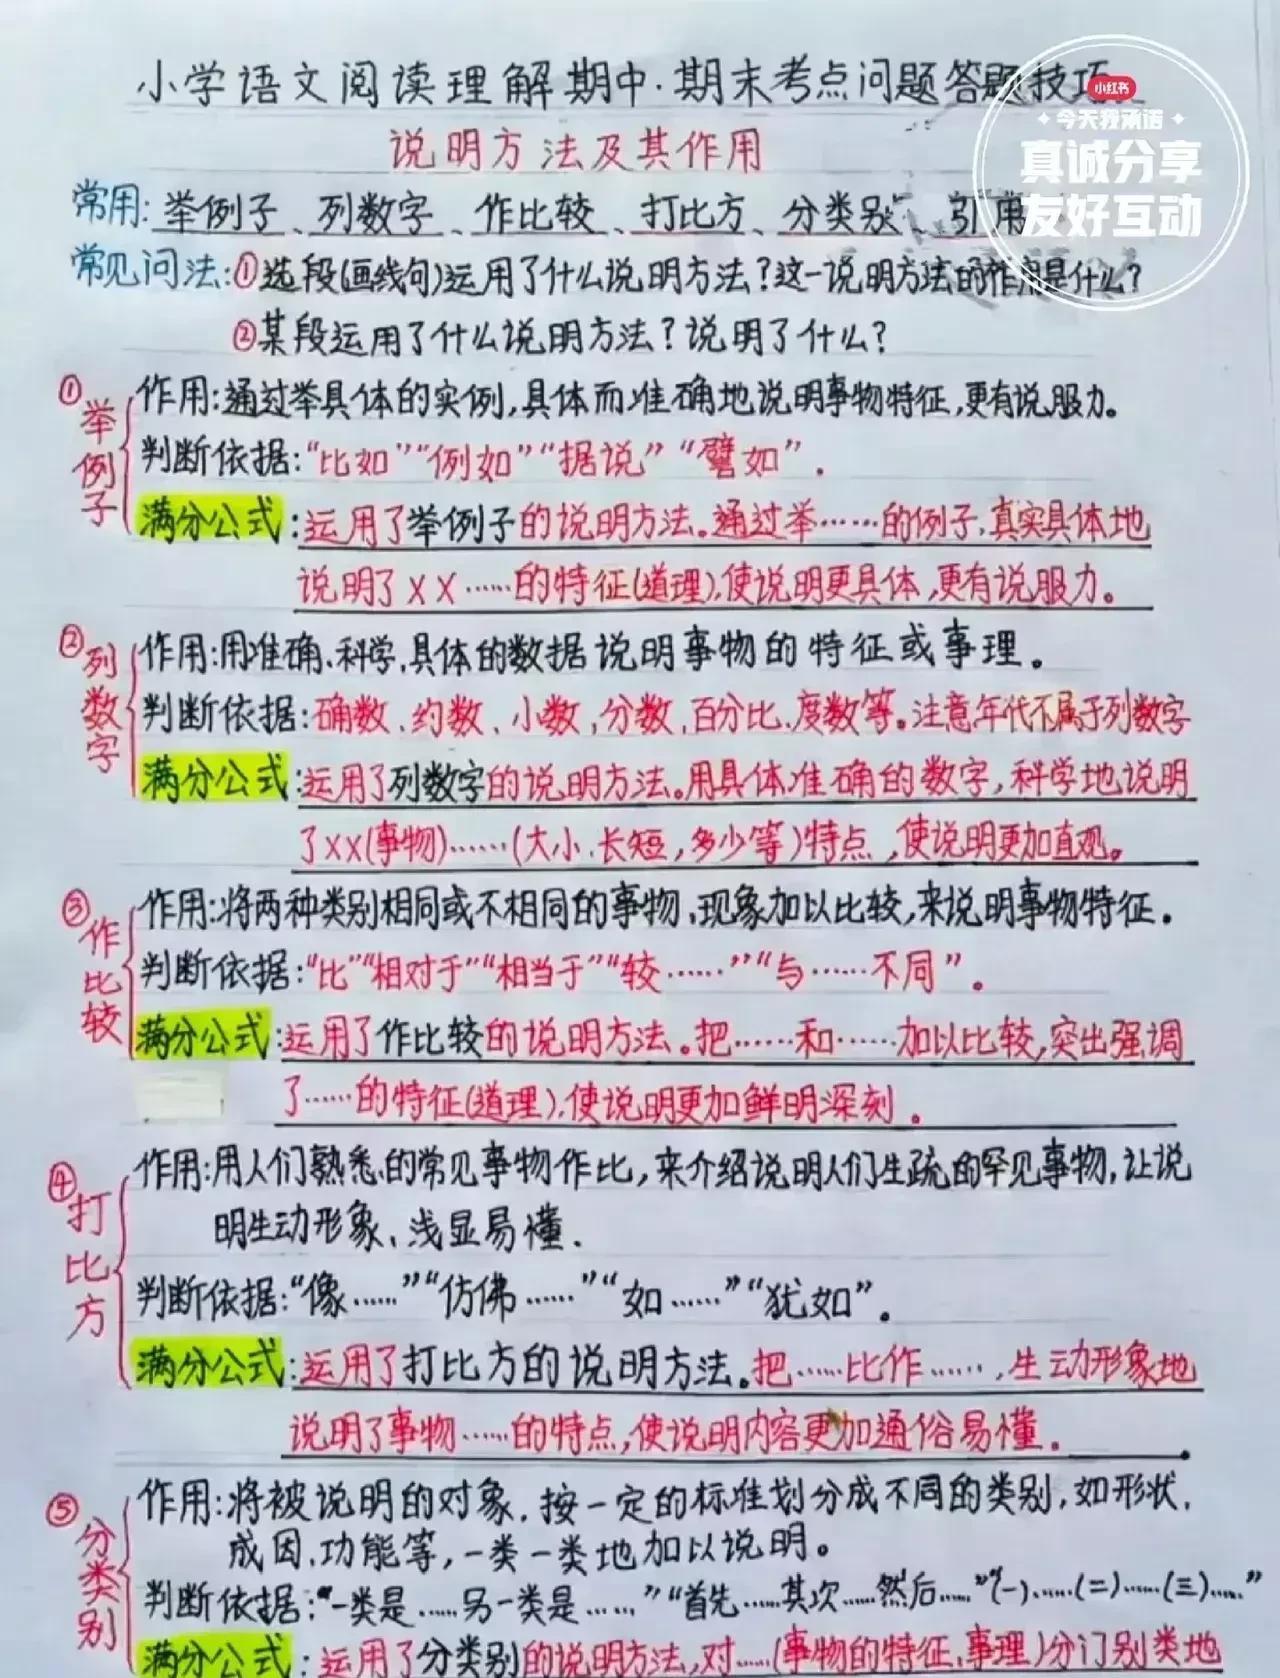 小学语文阅读理解期中.期末考点问题答题技巧
小红书
今天我承诺
真诚分享
友好互动
说明方法及其作用
常用:举例子、列数字、作比较、打比方、分类别、引用
常见问法:①选段(画线句)运用了什么说明方法?这一说明方法的作用是什么?
②某段运用了什么说明方法?说明了什么?
①举例子
作用:通过举具体的实例,具体而准确地说明事物特征,更有说服力。
判断依据:“比如”“例如”“据说”“譬如”.
满分公式:运用了举例子的说明方法。通过举……的例子,真实具体地
说明了XX……的特征(道理),使说明更具体,更有说服力。
②列数字
作用:用准确、科学,具体的数据说明事物的特征或事理。
判断依据:确数、约数、小数,分数,百分比、度数等。注意年代不属于列数字
满分公式:运用了列数字的说明方法。用具体准确的数字,科学地说明
了XX(事物)……(大小、长短,多少等)特点,使说明更加直观。
③作比较
作用:将两种类别相同或不相同的事物、现象加以比较,来说明事物特征.
判断依据:“比”“相对于”“相当于”“较……”“与……不同”。
满分公式:运用了作比较的说明方法。把……和……加以比较,突出强调
了……的特征(道理),使说明更加鲜明深刻。
④打比方
作用:用人们熟悉的常见事物作比,来介绍说明人们生疏的罕见事物,让说
明生动形象、浅显易懂.
判断依据:“像……”“仿佛……”“如……”“犹如”。
满分公式:运用了打比方的说明方法。把……比作……,生动形象地
说明了事物……的特点,使说明内容更加通俗易懂.
⑤分类别
作用:将被说明的对象.按一定的标准划分成不同的类别,如形状.
成因.功能等,一类一类地加以说明。
判断依据:“一类是……另一类是……”“首先……其次……然后……”“(一)……(二)……(三)……”
满分公式:运用了分类别的说明方法,对……(事物的特征,事理)分门别类地